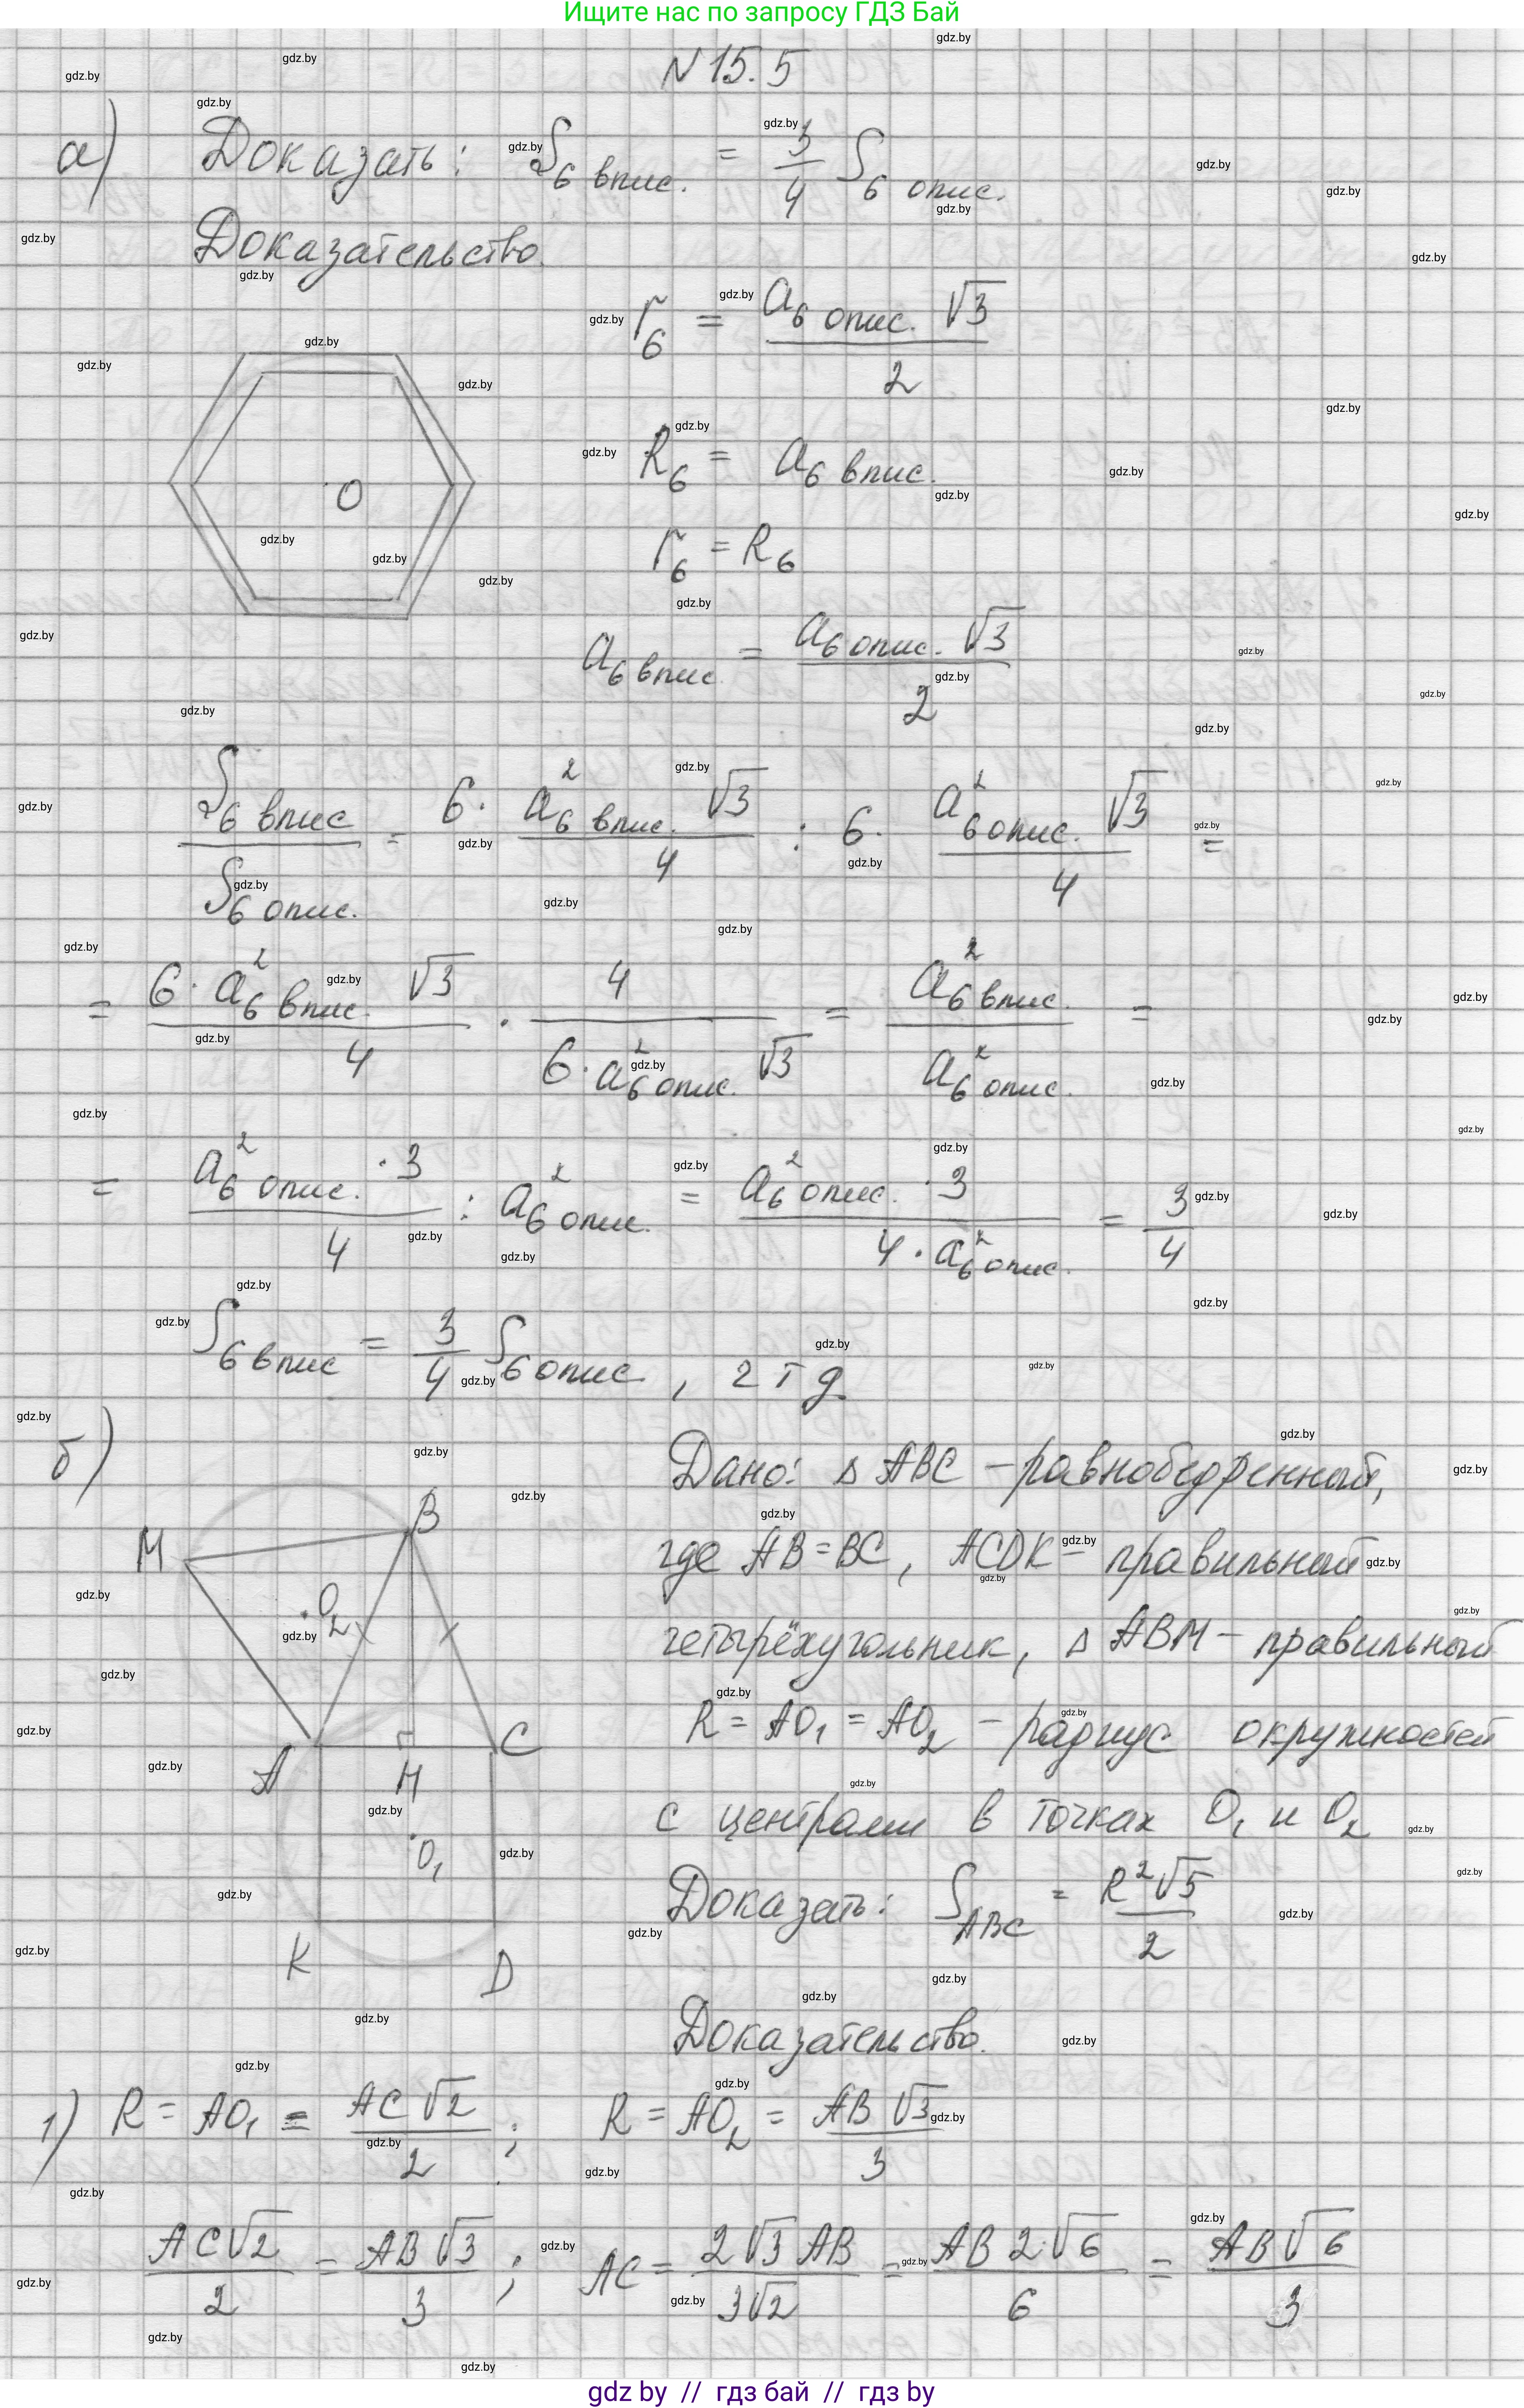 Ищите нас по запросу ГДЗ Бай
N 15.5
а) Доказать: S₆ впис. = 3/4 S₆ опис.
Доказательство.
r₆ = a₆ опис. √3 / 2
O
R₆ = a₆ впис.
r₆ = R₆
a₆ впис. = a₆ опис. √3 / 2
S₆ впис / S₆ опис. = 6 · a²₆ впис. √3 / 4 : 6 · a²₆ опис. √3 / 4 =
= 6 · a²₆ впис. √3 / 4 · 4 / 6 · a²₆ опис. √3 = a²₆ впис. / a²₆ опис. =
= a²₆ опис. · 3 / 4 : a²₆ опис. = a²₆ опис. · 3 / 4 · a²₆ опис. = 3/4
S₆ впис = 3/4 S₆ опис., ч т д.
б) Дано: Δ ABC – равнобедренный,
где AB = BC, ACDK – правильный
четырёхугольник, Δ ABM – правильный
R = AO₁ = AO₂ – радиус окружностей
с центрами в точках O₁ и O₂
Доказать: S ABC = R²√5 / 2
M B
O₂
A H C
O₁
K D
Доказательство.
1) R = AO₁ = AC √2 / 2 ; R = AO₂ = AB √3 / 3
AC√2 / 2 = AB √3 / 3 ; AC = 2√3 AB / 3√2 = AB 2·√6 / 6 = AB √6 / 3
gdz by // гдз бай // гдз by